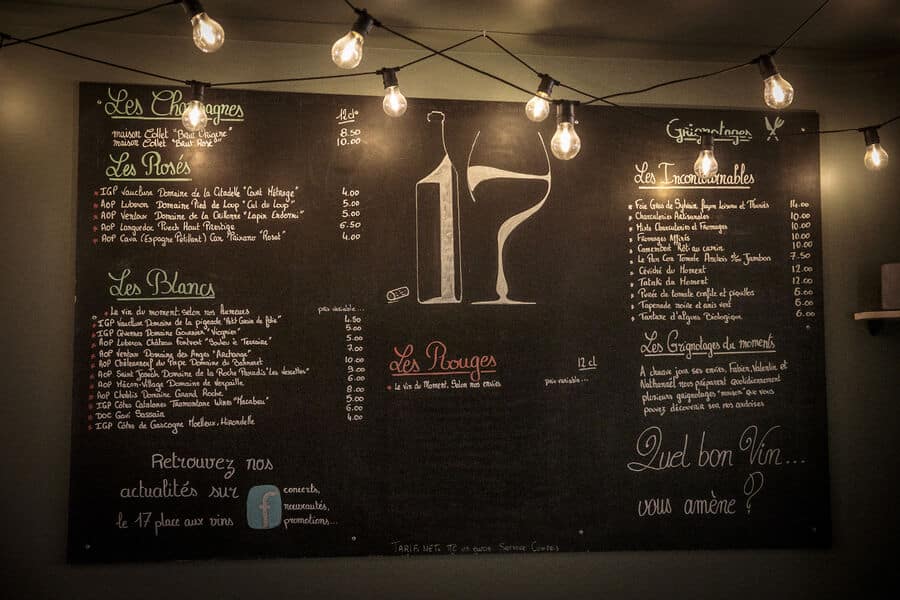 Les Champagnes 12cl
maison Collet "Brut 8.50
maison Collet "Brut Rosé" 10.00
Les Rosés
IGP Vaucluse Domaine de la Citadelle "Court Métrage" 4.00
AOP Luberon Domaine Pied de Loup "Cul du loup" 5.00
AOP Ventoux Domaine de la "Lapin Endormi" 5.00
AOP Languedoc Puech Haut Prestige 6.50
AOP Cava (Espagne Pétillant) Can "Rosat" 4.00
Les Blancs
Le vin du moment, selon nos prix variable...
IGP Vaucluse Domaine de la "Petit Grain de folie" 4.50
IGP Cévennes Domaine Gournier "Viognier" 5.00
AOP Luberon Château Fontvert 5.00
AOP Ventoux Domaine des Anges "Archange" 7.00
AOP Châteauneuf du Pape Domaine du Banneret 10.00
AOP Saint Joseph Domaine de la Roche Paradis 9.00
AOP Mâcon-Village Domaine de 6.00
AOP Chablis Domaine Grand Roche 8.00
IGP Côtes Catalanes Tramontane Wines "Macabeu" 5.00
DOC Gavi 6.00
IGP Côtes de Gascogne Moelleux, Hirondelle 4.00
Retrouvez nos
actualités sur f concerts,
nouveautés,
le 17 place aux vins promotions...
17
Les Rouges 12 cl
Le vin du Moment, Selon nos envies prix variable...
Grignotages
Les Incontournables
Foie Gras de Sylvain façon 14.00
Charcuteries Artisanales 10.00
Mixte Charcuterie et Fromages 10.00
Fromages Affinés 10.00
Camembert Rôti au carvin 10.00
Le Pan Con Tomate Anchois Jambon 7.50
Céviché du Moment 12.00
Tataki du Moment 12.00
Purée de tomate confite et piquillos 6.00
Tapenade noire et anis vert 6.00
Tartare d'algues Biologique 6.00
Les Grignotages du moments
A chaque jour ses envies, Fabien, Valentin et
Nathanaël nous préparent quotidiennement
plusieurs grignotages "maison" que vous
pouvez découvrir sur nos ardoises
Quel bon Vin...
vous amène ?
TARIF NET